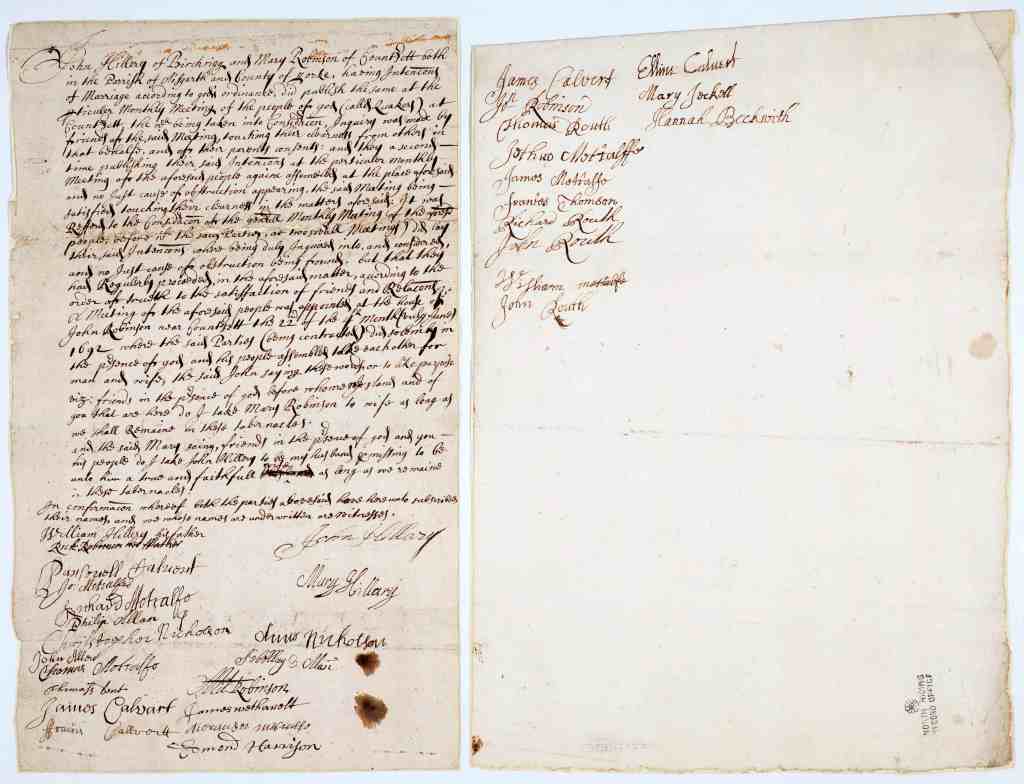 John Hillery of Birchrigg and Mary Robinson of Countsett both
in the Parish of Aisgarth and County of Yorke, having Intencons
of Marriage according to gods ordinance, did publish the same at the
perticuler Monthly Meeting of the people of god (called Quakers) at
Countsett, the wch being taken into Consideracon, Inquiry was made by
friends of the said Meeting, touching their clearness from others in
that behalfe, and of their parents consents: and they a second
time publishing their said Intencons at the perticuler monthly
Meeting of the aforesaid people againe assembled at the place aforesaid
and no Just cause of obstruction appearing, the said Meeting being
satisfied touching their clearness in the matters aforesaid: It was
Referred to the Consideracon of the generall Monthly Meeting of the
people, before wch the said Parties, at two severall Meetings did lay
their said Intencons where being duly Inquired into, and considered,
and no Just cause of obstruction being found, but that they
had Regulerly proceeded, in the aforesaid matter, according to the
order of trueth to the satisfaction of friends and Relacons.
A Meeting of the aforesaid people was appointed at the house of
John Robinson neare Countsett the 22th of the 4th Month (vulg: June)
1692 where the said Parties (being contracted) did solemnly in
the psence of god and his people assembled take each other for
man and wife, the said John saying these words, or to like purpose
viz: friends in the psence of god before whome I stand and of
you that are here do I take Mary Robinson to wife as long as
we shall Remaine in these tabernacles.
and the said Mary saing, friends in the psence of god and you
his people do I take John Hillery to be my husband pmissing to be
unto him a true and faithfull wife as long as we remaine
in these tabernacles.
In confirmacon whereof both the parties abovesaid have hereunto subscribed
their names, and we whose names are underwritten are witnesses.
William Hillery his father
Rich: Robinson
John Hillary
Calvert
Jo: Metcalfe
Mary Hillary
Richard Metcalfe
Philip Allan
Christopher Nicholson
Anne Nicholson
John
Thomas Metcalfe
Robinson
James Calvart
James
Edmond Harrison
James Calvert
Ellinr Calvert
Jo: Robinson
Mary
Thomas Routh
Hannah Beckwith
Metcalffe
James Metcalfe
Francis Thomson
Richard Routh
John Routh
William metcalfe
John Routh
NORTH RIDING
RECORD OFFICE